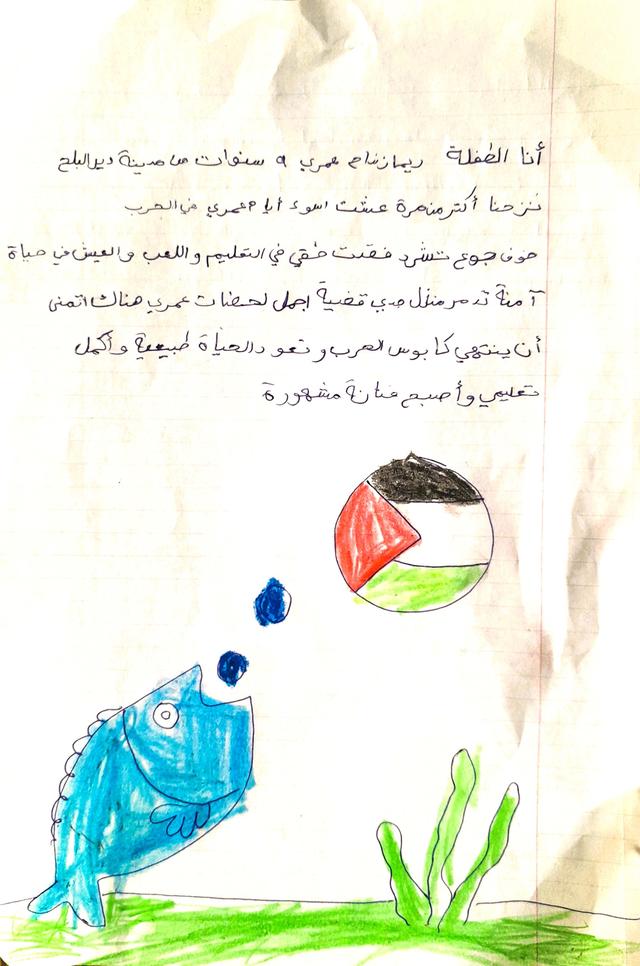 أنا الطفلة ريماز نداح عمري ٩ سنوات من مدينة ديرالبلح
نزحنا أكتر من مرة عشت اسوء أيام عمري في الحرب
خوف جوع تشرد فقدت حقي في التعليم واللعب والعيش في حياة
آمنة تدمر منزل جدي قضية اجمل لحضات عمري هناك اتمنى
أن ينتهي كابوس الحرب و تعود الحياة طبيعية وأكمل
تعليمي وأصبح فنانة مشهورة